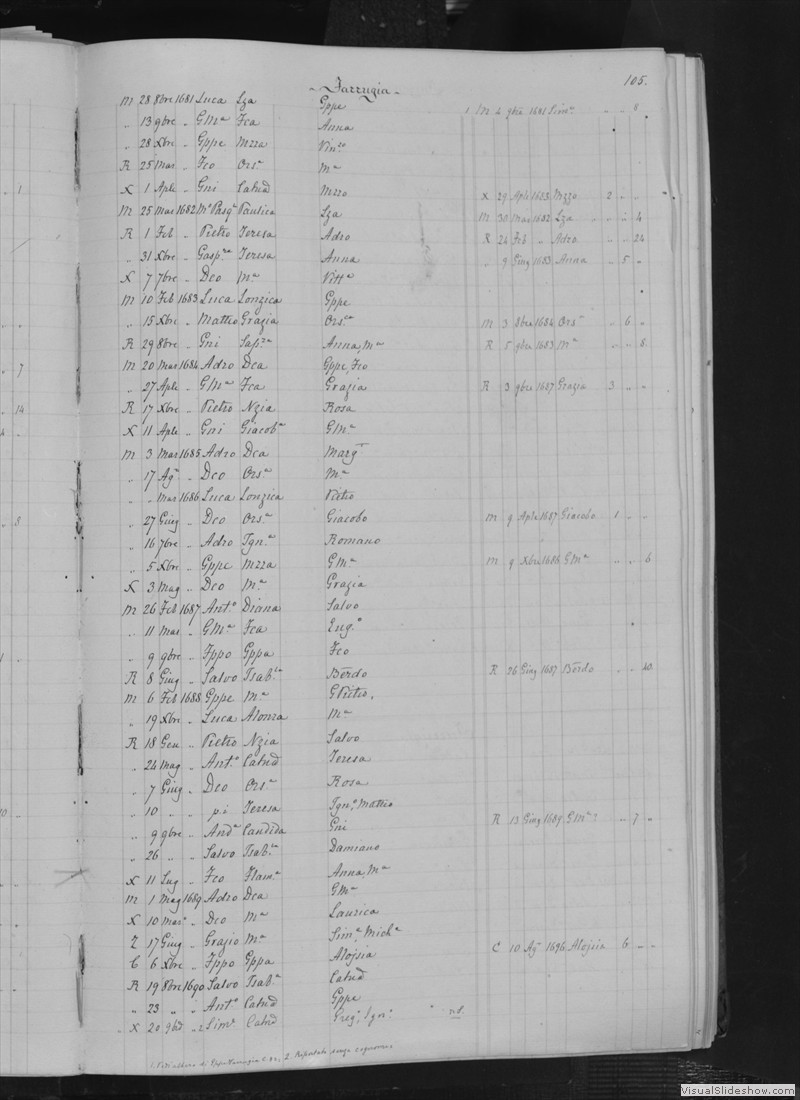 105.
- Farrugia -
M 28 8bre 1681 Luca Lza Gppe 1 M 4 9bre 1681 Sim.º " " "
" 13 9bre " GMª Fca Anna
" 28 Xbre " Gppe Mzza Vinzº
R 25 Mar " Fco Orsª Mª
X 1 Aple " Gni Catnd Mzzo X 29 Aple 1683 Mzzo 2 " "
M 25 Mar 1682 Mº Pasq Paulica Lza M 30 Mar 1682 Lza " " 4
R 1 Feb " Pietro Teresa Adro R 24 Feb " Adro " " 24
" 31 Xbre " Gasp.re Teresa Anna " 9 Giug 1683 Anna " 5 "
X 7 7bre " Dco Mª Vittª
M 10 Feb 1683 Luca Lonzica Gppe
" 15 Xbre " Matteo Grazia Ors.ca M 3 8bre 1684 Orsª " 6 "
R 29 8bre " Gni Sap.za Anna, Mª R 5 9bre 1683 Mª " " 8
M 20 Mar 1684 Adro Dca Gppe, Fco
" 27 Aple " GMª Fca Grazia R 3 9bre 1687 Grazia 3 " "
R 17 Xbre " Pietro Nzia Rosa
X 11 Aple " Gni Giacobª GMª
M 3 Mar 1685 Adro Dca Marg.
" 17 Ag. " Dco Orsª Mª
" " Mar 1686 Luca Lonzica Pietro
" 27 Giug " Dco Orsª Giacobo M 9 Aple 1687 Giacobo 1 " "
" 16 7bre " Adro Ign.ª Romano
" 5 Xbre " Gppe Mzza GMª M 9 Xbre 1686 GMª " " 6
X 3 Mag " Dco Mª Grazia
M 26 Feb 1687 Ant.º Diana Salvo
" 11 Mar " GMª Fca Eug.º
" 9 9bre " Fppo Gppa Fco
R 8 Giug " Salvo Isab.la Bērdo R 26 Giug 1687 Bērdo " " 20
M 6 Feb 1688 Gppe Mª GPietro,
" 19 Xbre " Luca Alonza Mª
R 18 Gen " Pietro Nzia Salvo
" 24 Mag " Ant.º Catnd Teresa
" 7 Giug " Dco Orsª Rosa
" 10 " " p.i Teresa Ign.º Matteo
" 9 9bre " Andª Candida Gni R 13 Giug 1689 GMª ? " 7 "
" 26 " " Salvo Isab.la Damiano
X 11 Lug " Fco Flam.ª Anna, Mª
M 1 Mag 1689 Adro Dca GMª
X 10 Mar.º " Dco Mª Laurica
Z 17 Giug " Grazio Mª Sim.ª, Mich.ª
C 6 Xbre " Fppo Gppa Alojsia C 10 Ag. 1696 Alojsia 6 " "
R 19 8bre 1690 Salvo Isab.ª Catnd
" 23 " " Ant.º Catnd Gppe
" X 20 9bd " 2 Sim.º Catnd Greg.º, Ign.º " n.l.
2. Riportato senza cognome
VisualSlideshow.com